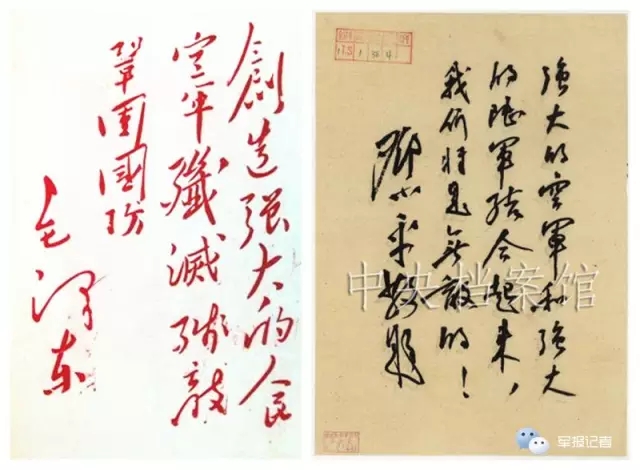 創造强大的人民
空軍殲滅残敵
鞏固國防
毛泽东
强大的空軍和强大
的陸軍结合起来，
我们将是无敵的！
鄧小平
中央档案馆
军报记者